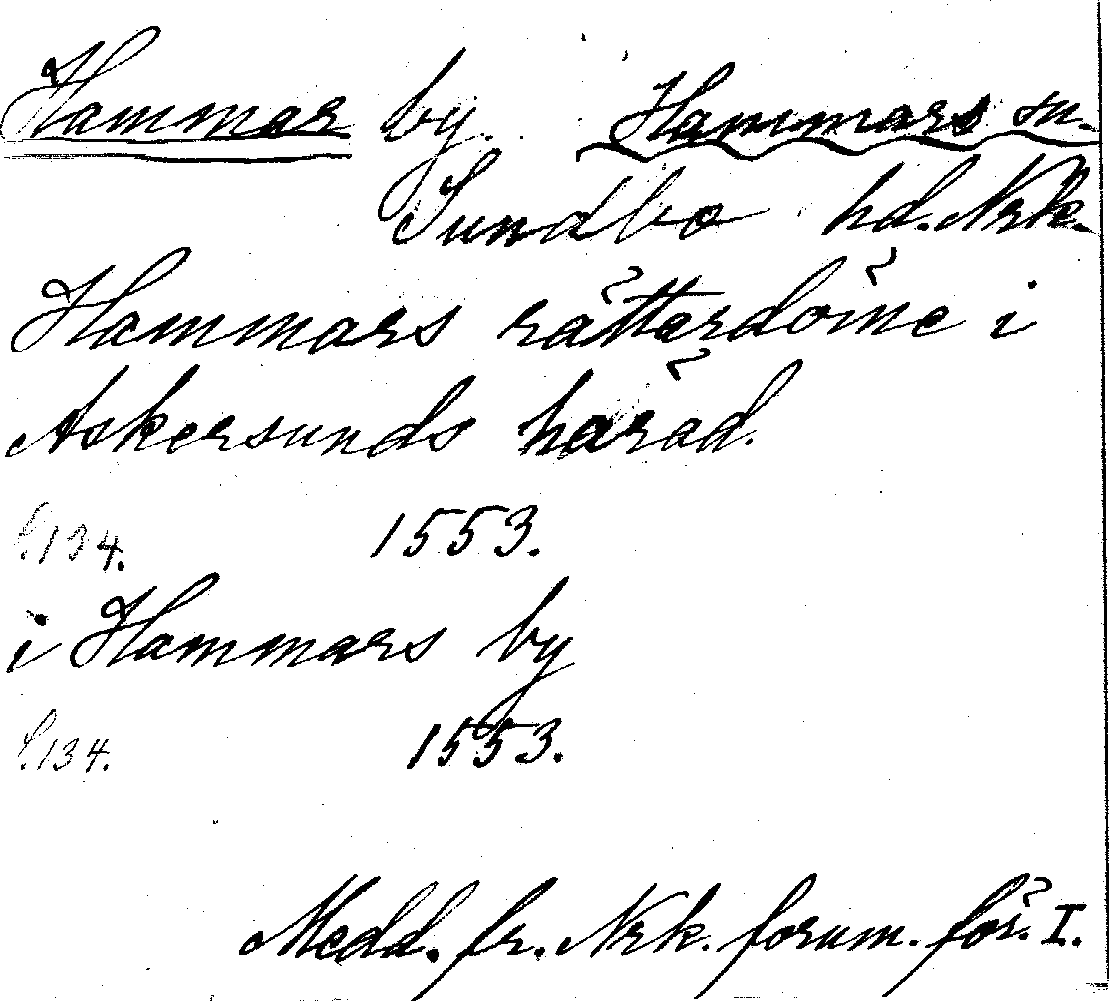 Hammar by. Hammars sn.
Sundbo hd. Nrk.
Hammars rätterdöme i
Askersunds härad.
S. 134. 1553.
i Hammars by
S. 134. 1553.
Medd. fr. Nrk. fornm. för. I.